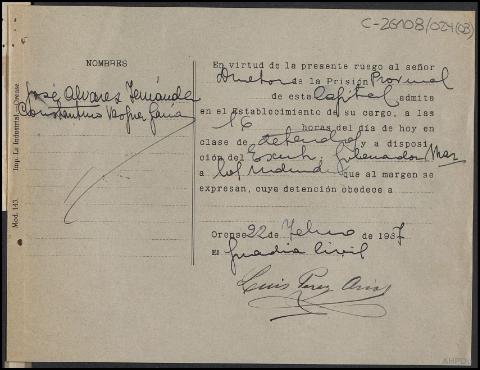 C-26108/024(03)
NOMBRES
José Alvares Fernández
Constantino García
En virtud de la presente ruego al señor
Director de la Prisión Provincial
de esta Capital admita
en el Establecimiento de su cargo, a las
16 horas del día de hoy en
clase de detenidos y a disposi
ción del Excmto. Gobernador
a los que al margen se
expresan, cuya detención obedece a
Orense 22 de Febrero de 1937
El Guardia Civil
Luis Perez Arias
Mod. 143. Imp. La Industrial - Orense
AHPOu